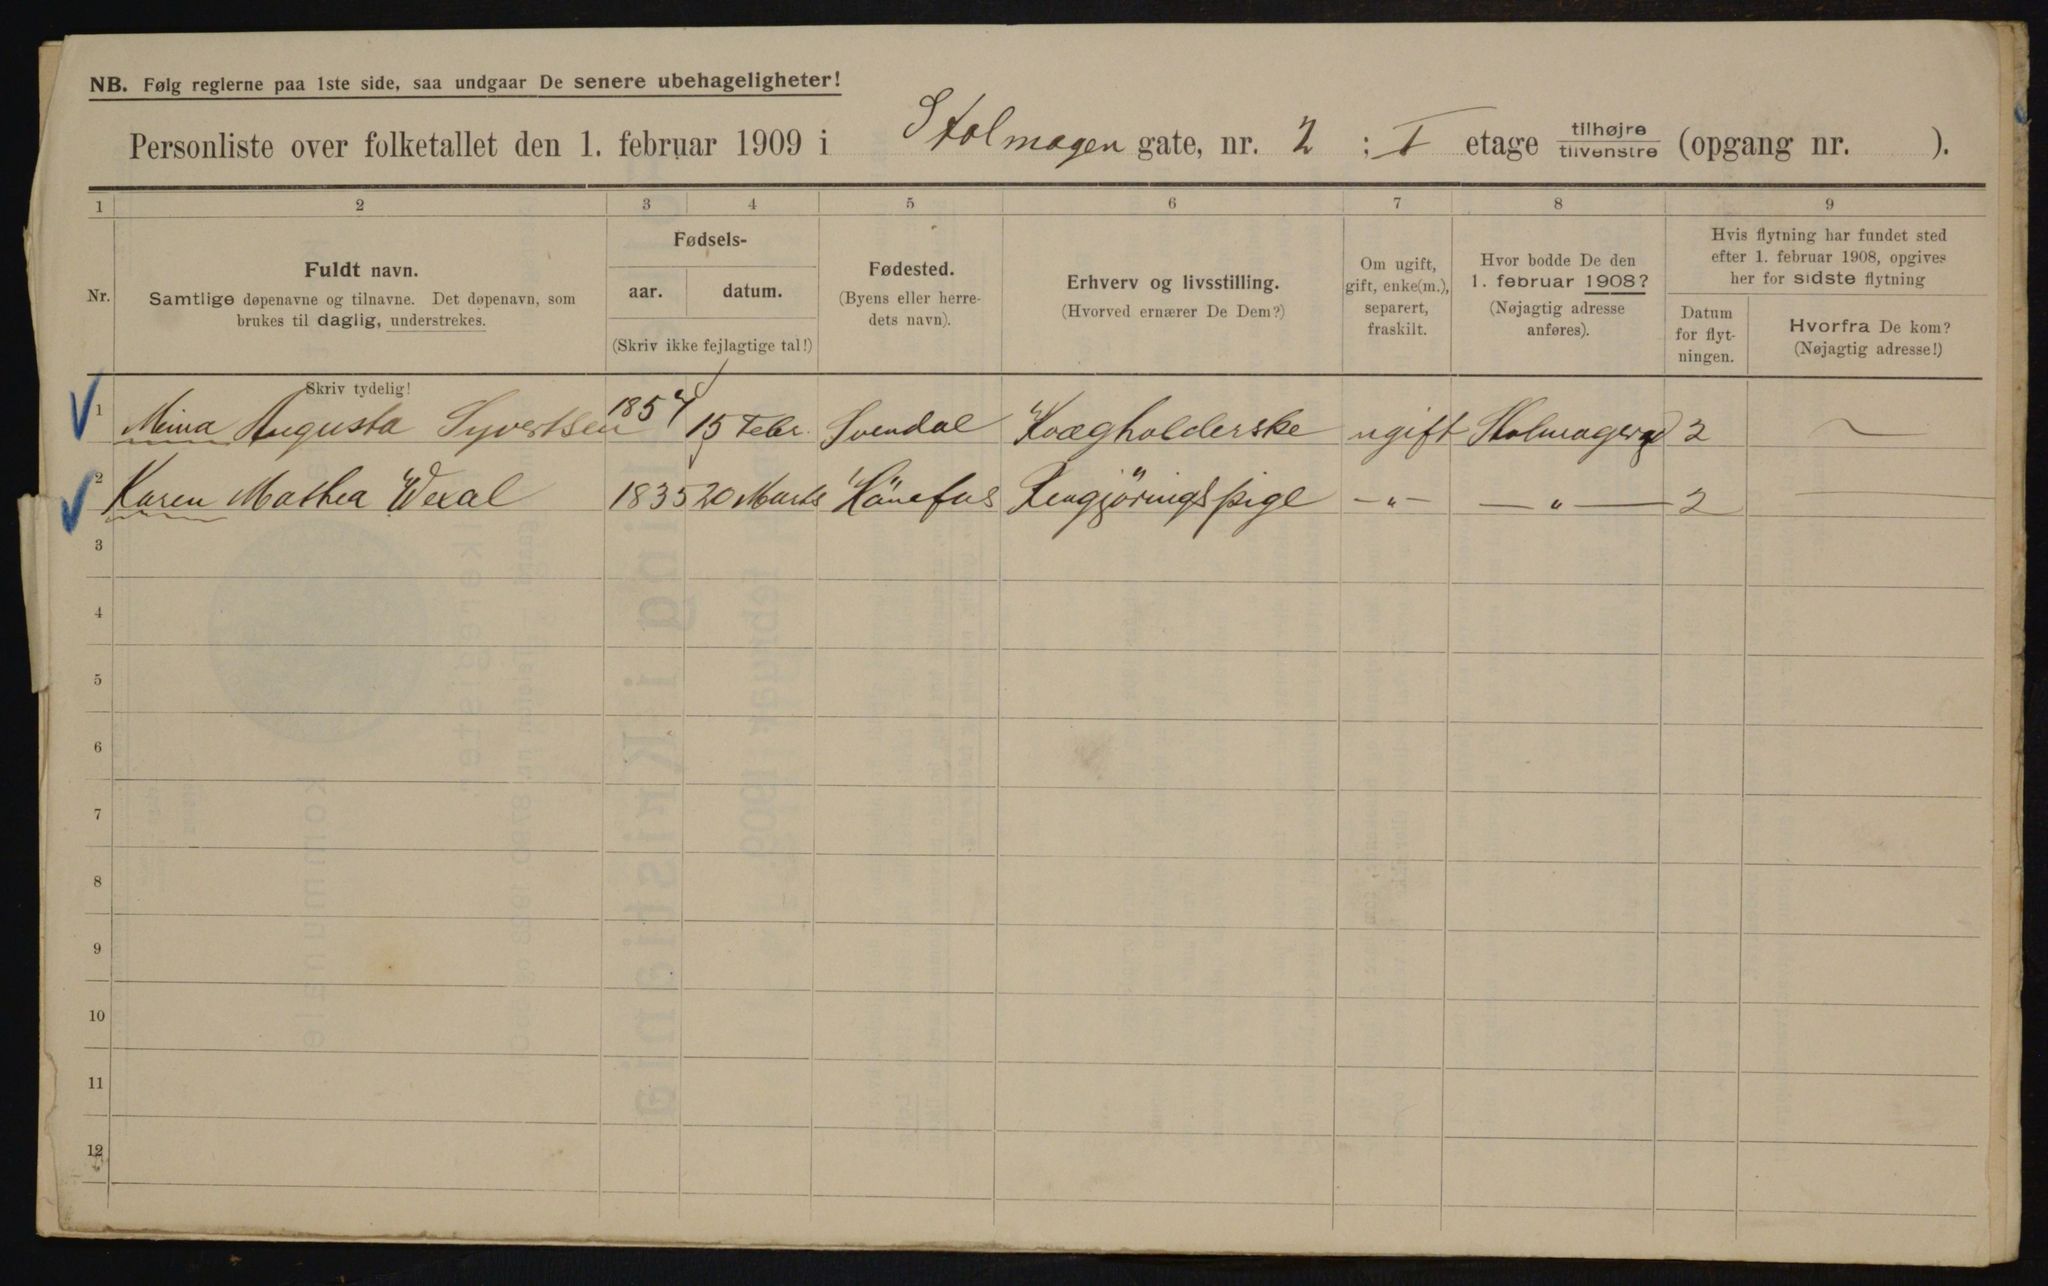 NB. Følg reglerne paa 1ste side, saa undgaar De senere ubehageligheter!
Personliste over folketallet den 1. februar 1909 i Stolmagen gate, nr. 2 : I etage tilhøjre tilvenstre (opgang nr. ).
1 2 3 4 5 6 7 8 9
Nr.
Fuldt navn.
Samtlige døpenavne og tilnavne. Det døpenavn, som
brukes til daglig, understrekes.
Skriv tydelig!
Fødsels-
aar. datum.
(Skriv ikke fejlagtige tal!)
Fødested.
(Byens eller herre-
dets navn).
Erhverv og livsstilling.
(Hvorved ernærer De Dem?)
Om ugift,
gift, enke(m.),
separert,
fraskilt.
Hvor bodde De den
1. februar 1908?
(Nøjagtig adresse
anføres).
Hvis flytning har fundet sted
efter 1. februar 1908, opgives
her for sidste flytning
Datum
for flyt-
ningen.
Hvorfra De kom?
(Nøjagtig adresse!)
1 Mina Augusta Syvertsen 1857 15 Febr. Svendal Kvægholderske ugift Stolmagergd 2
2 Karen Mathea Wexal 1835 20 Marts Hönefos Rengjöringspige — „ — — „ — 2
3
4
5
6
7
8
9
10
11
12